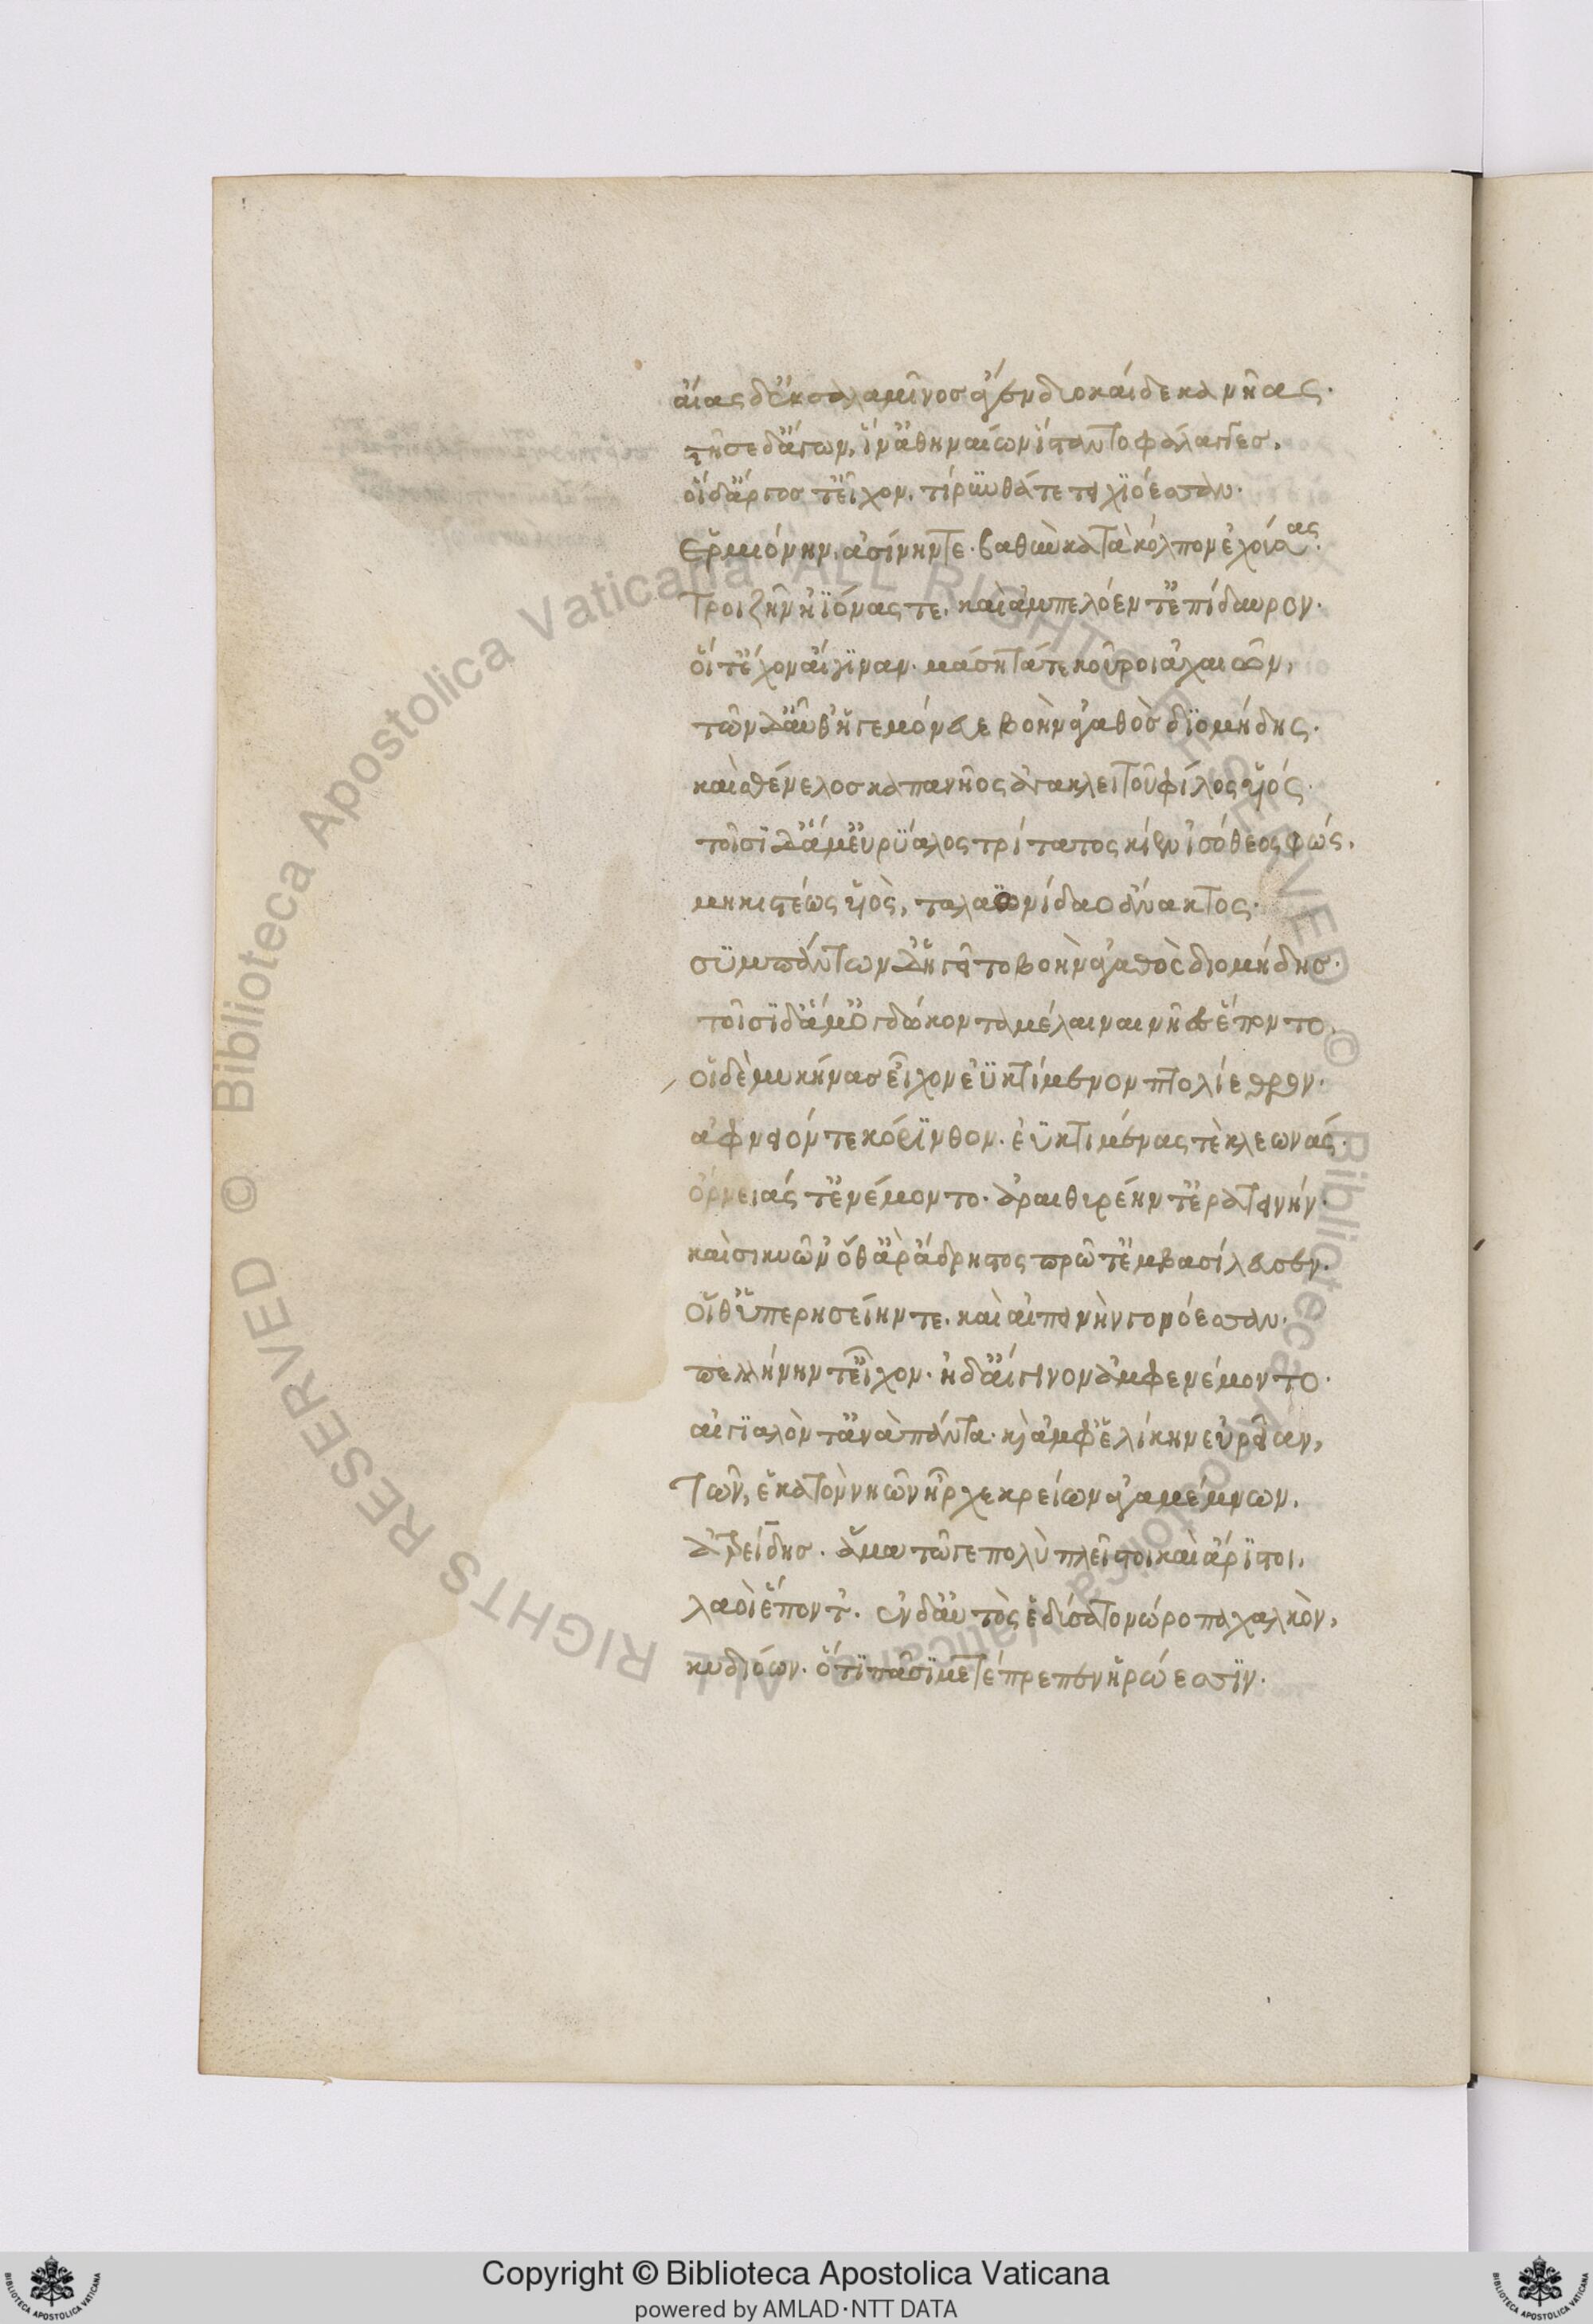 αἴας δ' ἐκ σαλαμῖνος ἄγεν δυοκαίδεκα νῆας.
στῆσε δ' ἄγων, ἵν' ἀθηναίων ἵσταντο φάλαγγες.
οἳ δ' ἄργος τ' εἶχον, τίρυνθά τε τειχιόεσσαν.
ἑρμιόνην, ἀσίνην τε. βαθὺν κατὰ κόλπον ἐχούσας.
τροιζῆν' ἠϊόνας τε, καὶ ἀμπελόεντ' ἐπίδαυρον.
οἵ τ' ἔχον αἴγϊναν. μάσητά τε κοῦροι ἀχαιῶν,
τῶν δ' αὖθ' ἡγεμόνευε βοὴν ἀγαθὸς διομήδης.
καὶ σθένελος καπανῆος ἀγακλειτοῦ φίλος υἱός.
τοῖσϊ δ' ἅμ' εὐρύαλος τρίτατος κίεν ἰσόθεος φώς.
μηκιστέως υἱὸς, ταλαϊονίδαο ἄνακτος.
συμπάντων δ' ἡγεῖτο βοὴν ἀγαθὸς διομήδης.
τοῖσϊ δ' ἅμ' ὀγδώκοντα μέλαιναι νῆες ἕποντο.
οἳ δὲ μυκήνας εἶχον ἐϋκτίμενον πτολίεθρον.
ἀφνειόν τε κόρϊνθον. ἐϋκτιμένας τε κλεωνάς.
ὀρνειάς τ' ἐνέμοντο. ἀραιθυρέην τ' ἐρατεινήν.
καὶ σικυῶν' ὅθ' ἄρ' ἄδρηστος πρῶτ' ἐμβασίλευεν.
οἵ θ' ὑπερησείην τε, καὶ αἰπεινὴν γονόεσσαν.
πελλήνην τ' εἶχον. ἠδ' αἴγιον ἀμφενέμοντο.
αἰγϊαλόν τ' ἀνὰ πάντα. καὶ ἀμφ' ἑλίκην εὐρεῖαν,
τῶν, ἑκατὸν νηῶν ἦρχε κρείων ἀγαμέμνων.
ἀτρείδης. ἅμα τῶγε πολὺ πλεῖστοι καὶ ἄρϊστοι,
λαοὶ ἕποντ'. ἐν δ' αὐτὸς ἐδύσατο νώροπα χαλκὸν,
κυδιόων. ὅτϊ πᾶσϊ μετέπρεπεν ἡρώεσσϊν.
Copyright © Biblioteca Apostolica Vaticana
powered by AMLAD·NTT DATA